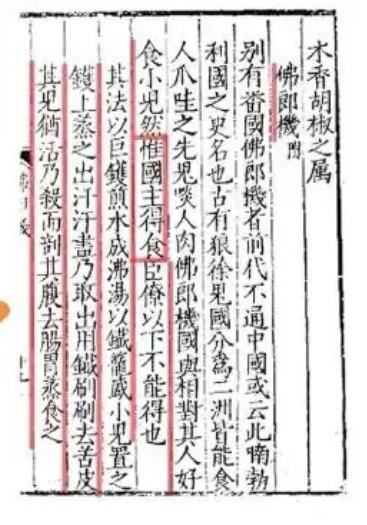 木香胡椒之属
佛郎機門
别有番國佛郎機者前代不通中國或云此喃勃
利國之更名也古有狼徐鬼國分爲二洲皆能食
人爪哇之先鬼啖人肉佛郎機國與相對其人好
食小児然惟國主得食臣僚以下不能得也
其法以巨鑊煎水成沸湯以鐵籠盛小児置之
鑊上蒸之出汗汗盡乃取出用鐵刷刷去苦皮
其児猶活乃殺而剖其腹去腸胃蒸食之